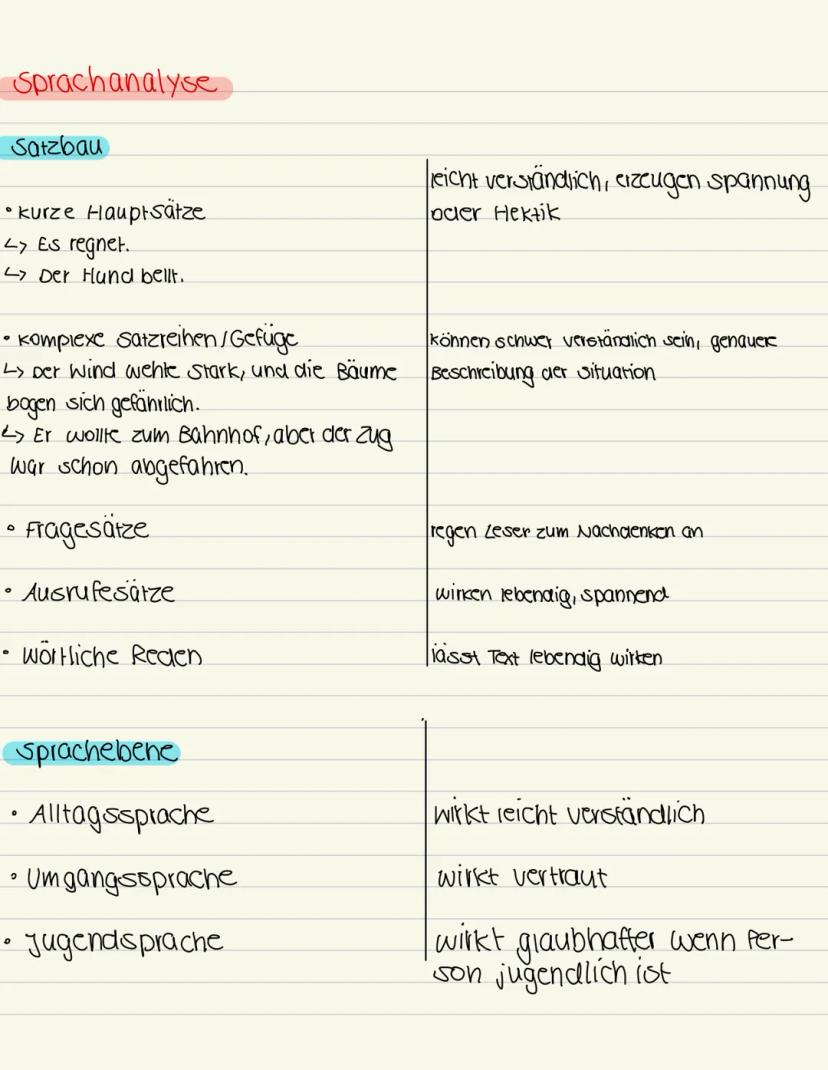 Sprachanalyse
Satzbau
leicht verständlich, erzeugen spannung
• kurze Hauptsätze
oder Hektik
↳ Es regnet.
↳ Der Hund bellt.
• komplexe Satzreihen/Gefüge
können schwer verständlich sein, genauere
↳ Der Wind wehte stark, und die Bäume
Beschreibung der situation
bogen sich gefährlich.
↳ Er wollte zum Bahnhof, aber der Zug
war schon abgefahren.
• Fragesätze
regen Leser zum Nachdenken an
• Ausrufesätze
wirken lebendig, spannend
• Wörtliche Reden
lässt Text lebendig wirken
Sprachebene
• Alltagssprache
wirkt leicht verständlich
• Umgangssprache
wirkt vertraut
• Jugendsprache
wirkt glaubhafter wenn Per-
son jugendlich ist